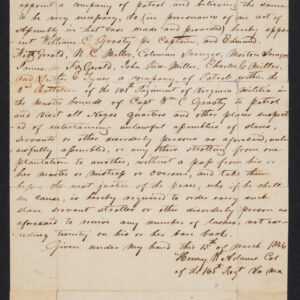 appoint a company of patrol and believing the same
to be very necessary, do (in pursuance of an act of
Assembly in that case made and provided) hereby
appoint William C. Grasty as Captain and Edmund
Fitzgerald, W C Miller, Coleman
James Fitzgerald, John Miller, Charles C Miller
and Jones a company of Patrol within the
Battalion of the 101st Regiment of Virginia militia in
the muster bounds of Capt Wm C Grasty to patrol
and visit all Negro quarters and other places suspect
ed of entertaining unlawful assemblies of slaves,
servants or other disorderly persons as aforesaid, unla
wfully assembled, or any others strolling from one
plantation to another, without a pass from his or
her master or mistress or overseer, and take them
before the next justice of the peace, who if he shall
see cause, is hereby required to order every such
slave, servant stroller or other disorderly person as
aforesaid to receive any number of lashes, not ex-
ceeding twenty on his or her bare back.
Given under my hand this 13th of March 1846
Henry Adams Col
of the Regt Va ma